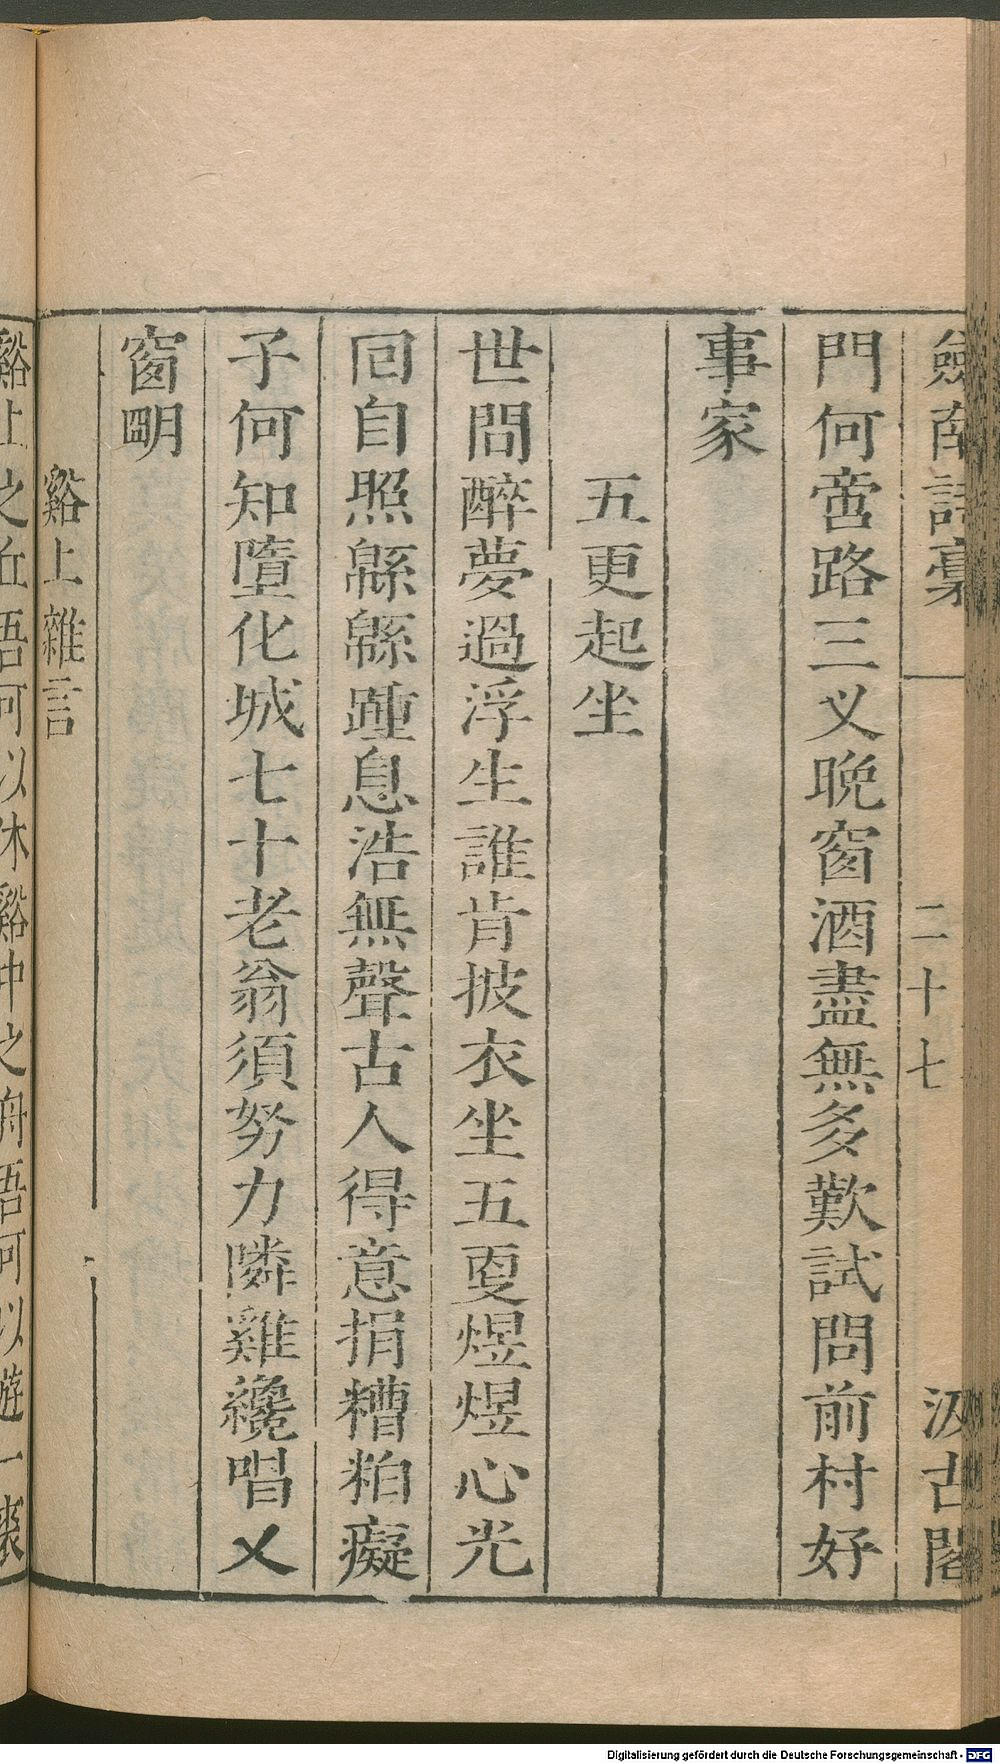 劒南詩稾 二十七 汲古閣
門何啻路三叉晩窗酒盡無多歎試問前村好
事家
五更起坐
世間醉夢過浮生誰肯披衣坐五更煜煜心光
囘自照緜緜踵息浩無聲古人得意捐糟粕癡
子何知墮化城七十老翁須努力隣雞纔唱乂
窗朙
谿上雜言
谿上之丘吾可以休谿中之舟吾可以遊一裘
Digitalisierung gefördert durch die Deutsche Forschungsgemeinschaft - DFG